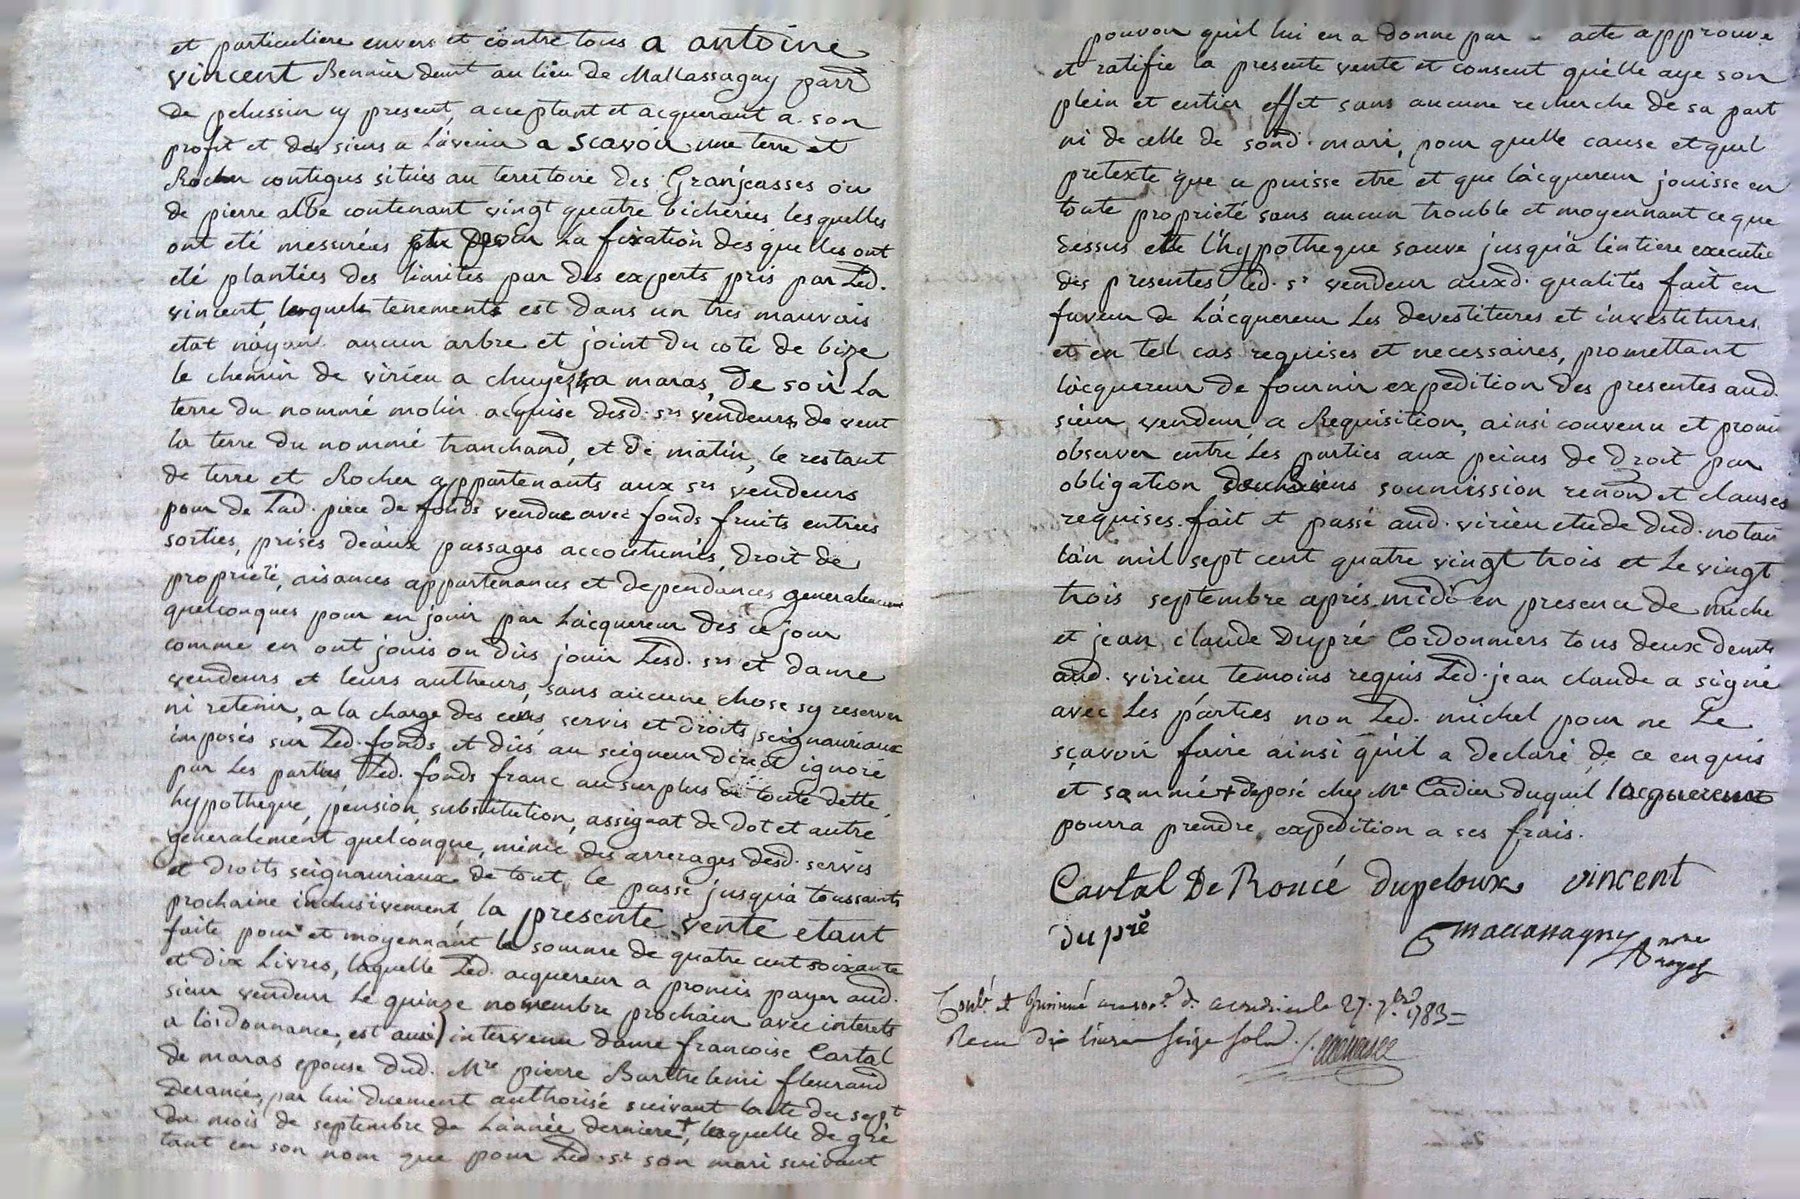 et particuliere envers et contre tous a antoine
vincent demt au lieu de Mallassagny parr
de pelussin cy present, acceptant et acquerant a son
profit et des siens a l'avenir a scavoir une terre et
Rocher contigus situés au territoire des Granjeasses ou
de pierre albe contenant vingt quatre bicherées lesquelles
ont eté mesurées pour la fixation desquelles ont
eté plantées des limites par des experts pris par Led.
vincent, lequel tenements est dans un tres mauvais
etat n'ayant aucun arbre et joint du coté de bize
le chemin de virieu a chuyés a maras, de soir la
terre du nommé molin acquise desd. srs vendeurs, de vent
la terre du nommé tranchand, et de matin, le restant
de terre et Rocher appartenants aux srs vendeurs
pour de Lad. piece de fonds vendue avec fonds fruits entrées
sorties, prises d'eaux passages accoutumés, droit de
proprieté, aisances appartenances et dependances generalement
quelconques pour en jouir par L'acquereur des ce jour
comme en ont jouis ou dus jouir Lesd. srs et dame
vendeurs et leurs autheurs, sans aucune chose sy reserver
ni retenir, a la charge des cens servis et droits seignauriaux
imposés sur Led. fonds et dûs au seigneur direct ignoré
par Les parties, Led. fonds franc au surplus de toute dette,
hypotheque, pension, substitution, assignat de dot et autre
generalement quelconque, même des arrerages desd. servis
et droits seignauriaux de tout le passé jusqu'a toussaints
prochaine inclusivement, la presente vente etant
faite pour et moyennant la somme de quatre cent soixante
et dix Livres, laquelle Led. acquereur a promis payer aud.
sieur vendeur Le quinze novembre prochain avec interets
a l'ordonnance, est aussi intervenu dame francoise Cartal
de maras epouse dud. Mre pierre Barthelemi fleurand
Derancé, par lui duement authorisé suivant l'acte du sept
du mois de septembre de L'année derniere, laquelle de gré
tant en son nom que pour Led. sr son mari suivant
pouvoir quil lui en a donné par acte approuve
et ratifie la presente vente et consent qu'elle aye son
plein et entier effet sans aucune recherche de sa part
ni de celle de sond. mari, pour quelle cause et quel
pretexte que ce puisse etre et que l'acquereur jouisse en
toute proprieté sans aucun trouble et moyennant ce que
dessus et L'hypotheque sauve jusqu'a l'entiere execution
des presentes Led. sr vendeur auxd. qualités fait en
faveur de L'acquereur Les devestitures et investitures
et en tel cas requises et necessaires, promettant
l'acquereur de fournir expedition des presentes aud.
sieur vendeur a Requisition, ainsi convenu et promi
observer entre Les parties aux peines de droit par
obligation soumission renond et clauses
requises. fait et passé aud. virieu etude dud. notair
l'an mil sept cent quatre vingt trois et Le vingt
trois septembre aprés midi en presence de miche
et jean claude Dupré Cordonniers tous deux demts
aud. virieu temoins requis Led. jean claude a signé
avec Les parties non Led. michel pour ne Le
sçavoir faire ainsi qu'il a declaré de ce enquis
et sommé deposé chez Me Cadier duquil lacquereur
pourra prendre expedition a ses frais.
Cartal De Roncé dupeloux vincent
dupré
maccassagny nore
royal
Conlé et 27. 7bre 1783=
Recu dix livres seize sols.